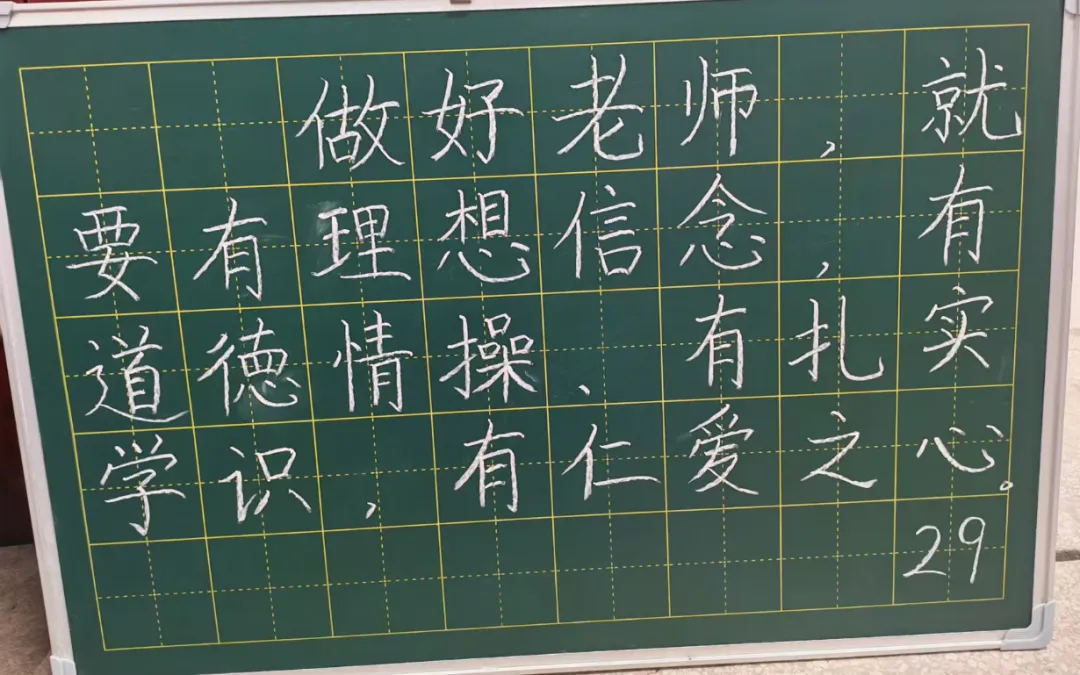 做好老师，就
要有理想信念，有
道德情操、有扎实
学识，有仁爱之心。
29